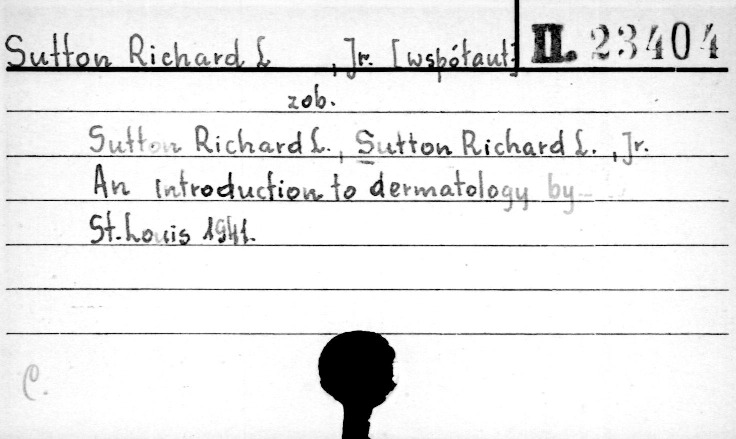 Sutton Richard L , Jr. [współaut] II. 23404
zob.
Sutton Richard L., Sutton Richard L. , Jr.
An introduction to dermatology by
St. Louis 1941.
C.